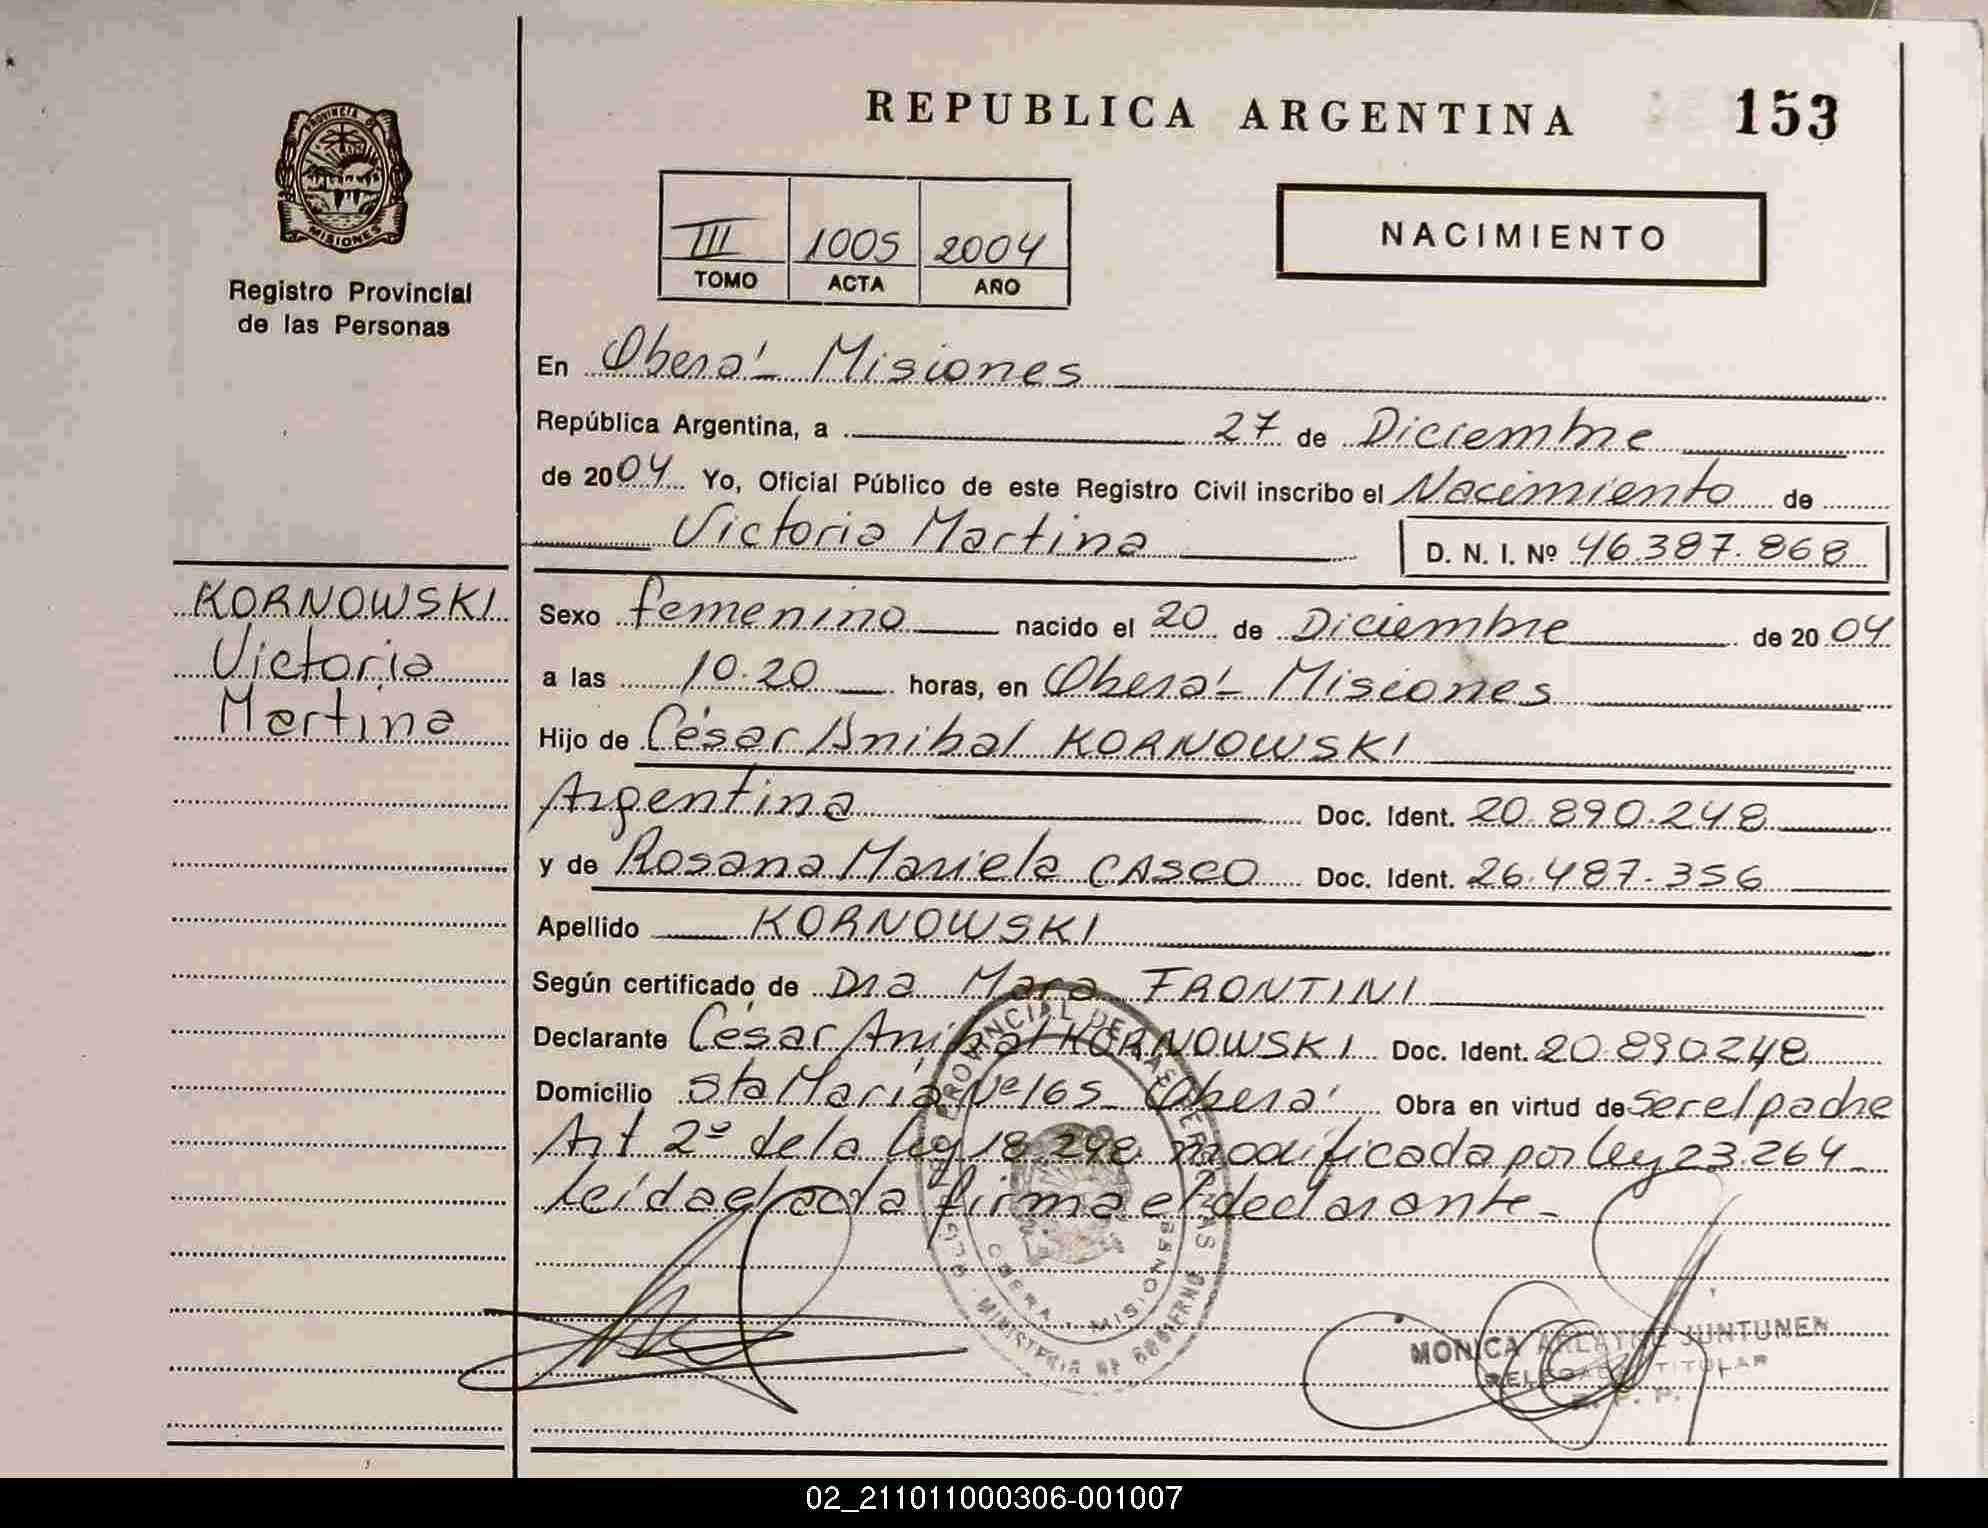 REPUBLICA ARGENTINA 153
PROVINCIA D MISIONES
Registro Provincial
de las Personas
III 1005 2004
TOMO ACTA AÑO
NACIMIENTO
En Oberá - Misiones
República Argentina, a 27 de Diciembre
de 2004 Yo, Oficial Público de este Registro Civil inscribo el Nacimiento de
Victoria Martina D. N. I. Nº 46.387.868
KORNOWSKI
Victoria
Martina
Sexo femenino nacido el 20 de Diciembre de 2004
a las 10.20 horas, en Oberá - Misiones
Hijo de César Aníbal KORNOWSKI
Argentina Doc. Ident. 20.890.248
y de Rosana Mariela CASCO Doc. Ident. 26.487.356
Apellido KORNOWSKI
Según certificado de Dra Mara FRONTINI
Declarante César Aníbal KORNOWSKI Doc. Ident. 20.890248
Domicilio Sta María Nº 165 - Oberá Obra en virtud de ser el padre
Art 2º de la ley 18.248 modificada por ley 23.264
Leída el acta firma el declarante -
PROVINCIAL DE LAS PERSONAS
OBERA - MISIONES
MINISTERIO DE GOBIERNO
MONICA JUNTUNEN
DELEGADA TITULAR
R. P. P.
02_211011000306-001007